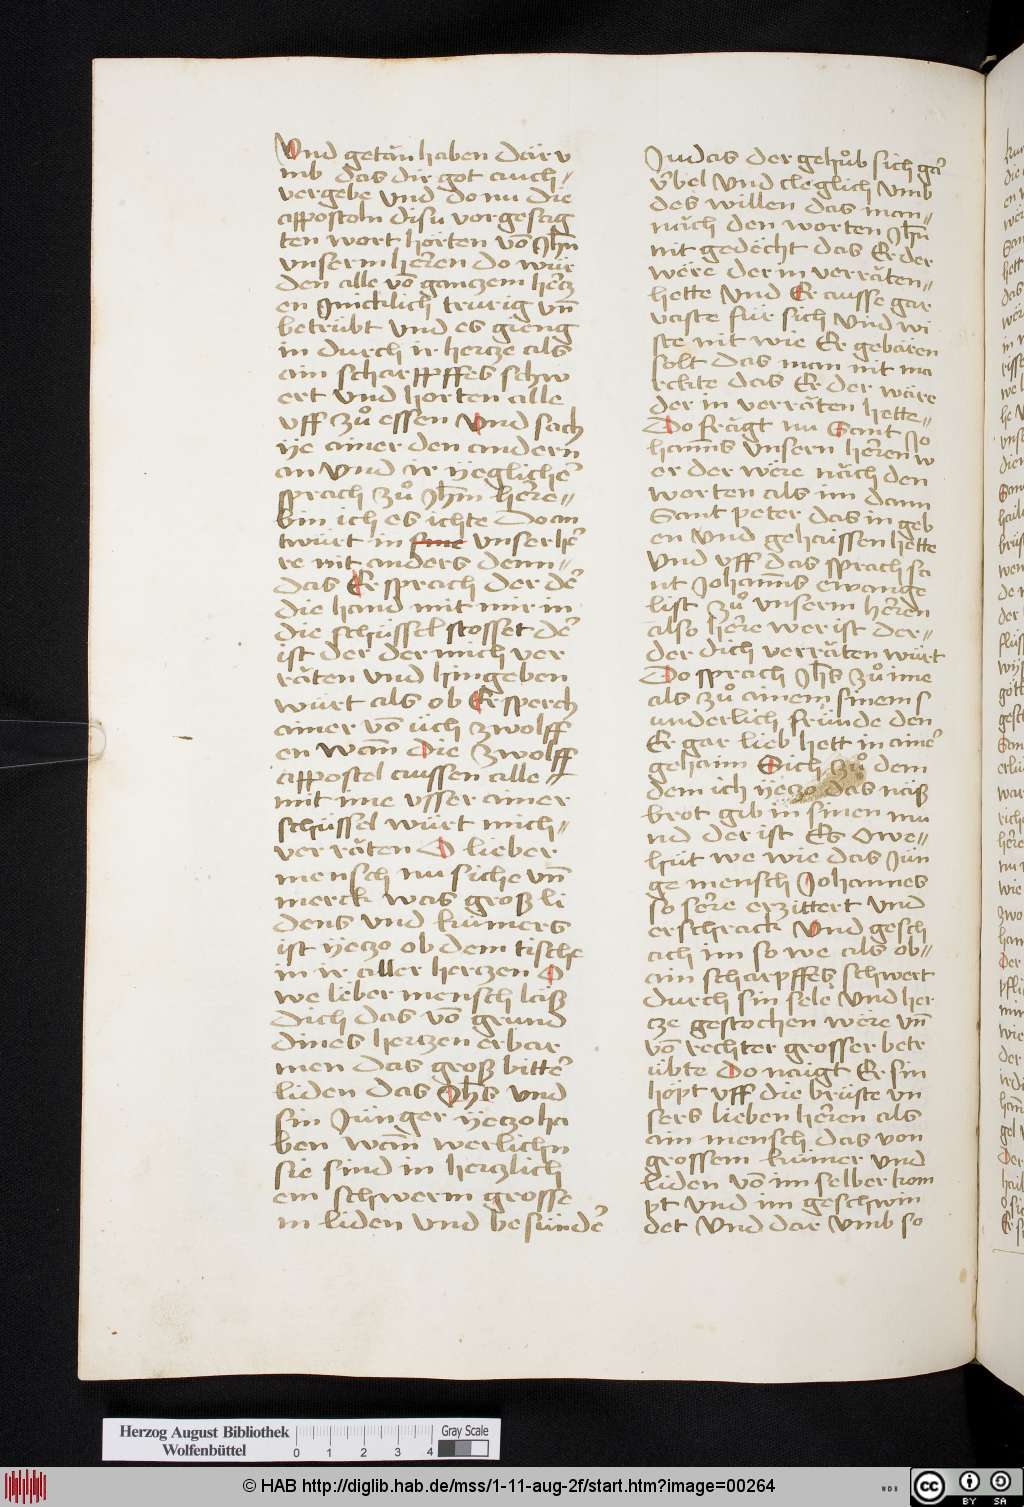 Vnd getän haben där v
mb das dir got auch⸗
vergebe vnd do nu die
appostoln disu vorgesag
ten wort horten vō Jh̄n
vnserm heren do wür
den alle vō ganczem hercz
en Jnicklich trurig vn̄
betrübt vnd es gieng
in durch ir hercze als
ain scharppffes schw
ert vnd horten alle
vff zů essen Vnd sach
ye ainer den andern
an vnd ir yeglicher
sprach zů Jh̄m here⸗
bin ich es ichte Do an
twürt in vnser he
re nit anders denn⸗
das Er sprach der der
die hand mit mir in
die schüssel stosset der
ist der der mich ver
räten vnd hingeben
würt als ob Er sperch
ainer vō üch zwolff
en wan̄ die zwolff
appostel aussen alle⸗
mit ime vsser ainer
schüssel würt mich⸗
verräten O lieber
mensch nu siche vn̄
merck was groß li
dens vnd kumers
ist yeczo ob dem tische
in ir aller herczen O
we lieber mensch läß
dich das vō grund
dines herczen erbar
men das groß bitter
liden das Jh̄s vnd
sin Jünger yeczo ha
ben wan̄ werlichn
sie sind in herczlich
em schwerm grosse
m liden vnd besunder
Judas der gehůb sich gar
vbel vnd cleglich vmb
des willen das man⸗
näch den worten Jh̄n
nit gedëcht das Er der
wëre der in verräten⸗
hette vnd Er ausse gar
vaste für sich vnd wi
ste nit wie Er gebären
solt das man nit ma
rckte das Er der wäre
der in verräten hette⸗
Do frägt nu Sant Jo
han̄s vnsern heren w
er der wëre näch den
worten als im dann
Sant peter das in geb
en vnd gehaussen hette
vnd vff das sprach sa
nt Johan̄s ewange
list zů vnserm heren
also here wer ist der⸗
der dich verräten würt
Do sprach Jh̄s zů ime
als zů ainem sinem s
underlich fründe den
Er gar lieb hett in ainer
gehaim Sich zů dem
dem ich yeczo das näß
brot gib in sinen mu
nd der ist Es Owe⸗
hüt we wie das Jun
ge mensch Johannes
so sere erzittert vnd
erschrack Vnd gesch
ach im so we als ob⸗
ain scharpffes schwert
durch sin sele vnd her
cze gestochen wëre vn̄
vō rechter grosser betr
übte Do naügt Er sin
höpt vff die brüste vn
sers lieben heren als
ain mensch das von
grossem kumer vnd
liden vō im selber kom
pt vnd im geschwin
det vnd dar vmb so
Herzog August Bibliothek
Wolfenbüttel
0 1 2 3 4
Gray Scale
© HAB http://diglib.hab.de/mss/1-11-aug-2f/start.htm?image=00264
WDB
cc BY SA